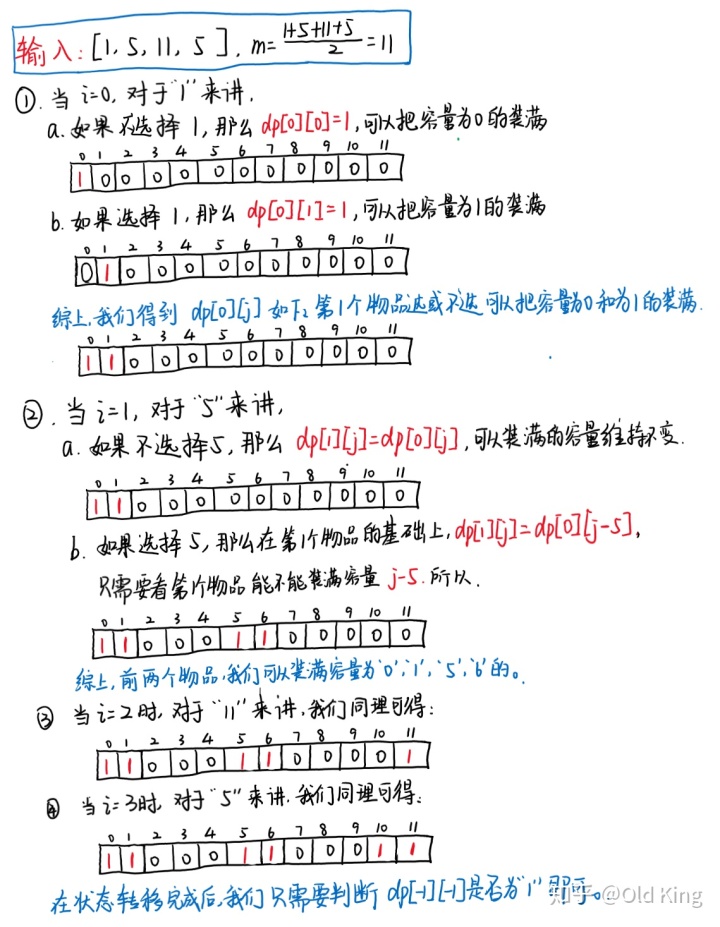 输入: [1, 5, 11, 5], m= 1+5+11+5 / 2 = 11
①. 当i=0, 对于“1”来讲,
a. 如果不选择1, 那么 dp[0][0]=1, 可以把容量为0的装满
0 1 2 3 4 5 6 7 8 9 10 11
1 0 0 0 0 0 0 0 0 0 0 0
b. 如果选择1, 那么 dp[0][1]=1, 可以把容量为1的装满
0 1 2 3 4 5 6 7 8 9 10 11
0 1 0 0 0 0 0 0 0 0 0 0
综上, 我们得到 dp[0][j] 如下, 第1个物品选或不选可以把容量为0和为1的装满.
0 1 2 3 4 5 6 7 8 9 10 11
1 1 0 0 0 0 0 0 0 0 0 0
②. 当i=1, 对于“5”来讲,
a. 如果不选择5, 那么 dp[1][j]=dp[0][j], 可以装满的容量维持不变.
0 1 2 3 4 5 6 7 8 9 10 11
1 1 0 0 0 0 0 0 0 0 0 0
b. 如果选择5, 那么在第1个物品的基础上, dp[1][j]=dp[0][j-5],
只需要看第1个物品能不能装满容量 j-5. 所以.
0 1 2 3 4 5 6 7 8 9 10 11
1 1 0 0 0 1 1 0 0 0 0 0
综上, 前两个物品, 我们可以装满容量为‘0’, ‘1’, ‘5’, ‘6’的。
③ 当i=2时, 对于“11”来讲, 我们同理可得:
0 1 2 3 4 5 6 7 8 9 10 11
1 1 0 0 0 1 1 0 0 0 0 1
④ 当i=3时, 对于“5”来讲, 我们同理可得:
0 1 2 3 4 5 6 7 8 9 10 11
1 1 0 0 0 1 1 0 0 0 1 1
在状态转移完成后, 我们只需要判断 dp[-1][-1]是否为“1”即可。
知乎 @Old King